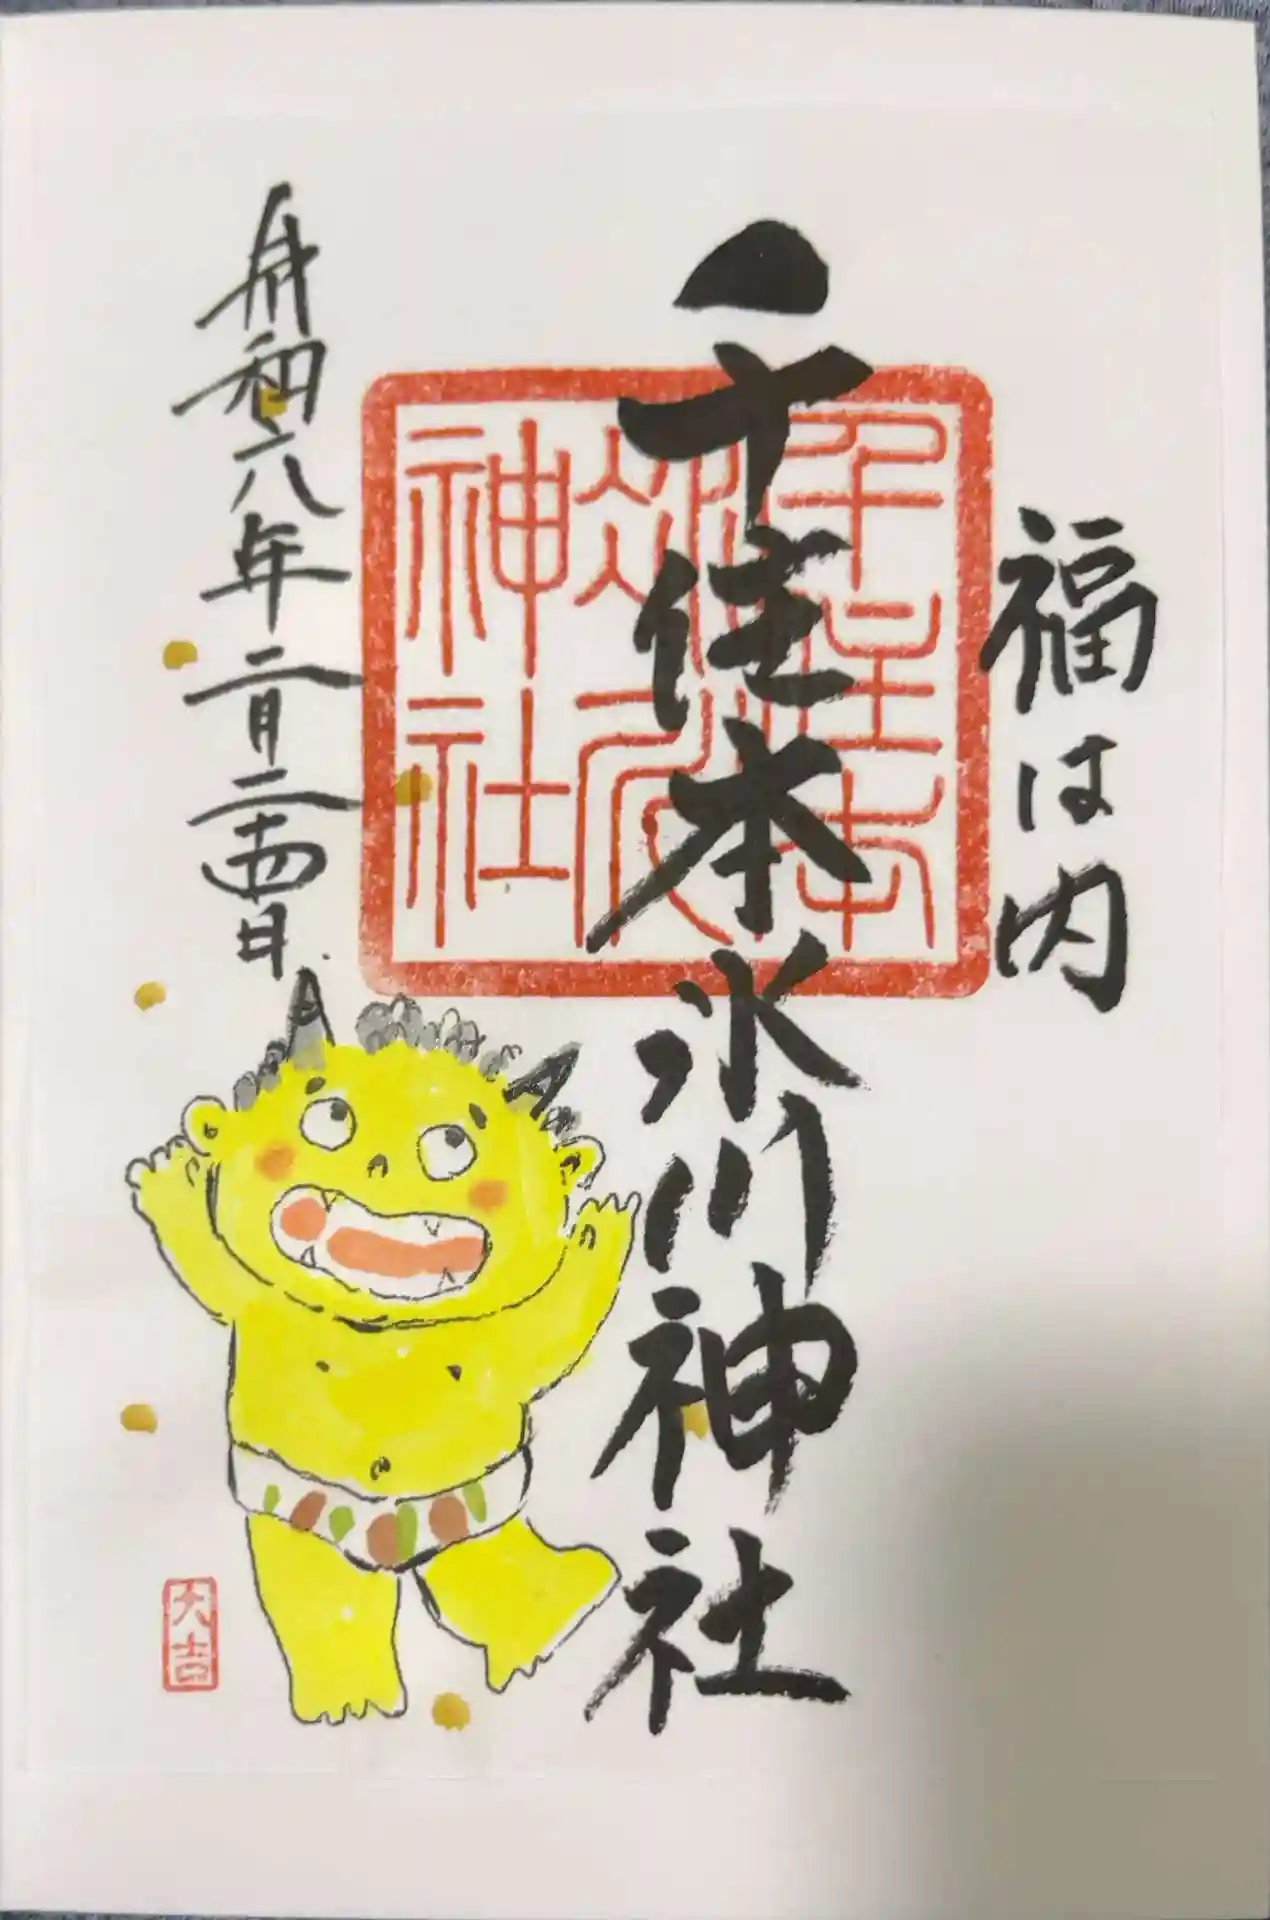 福は内
千住本氷川神社
千住本
氷川
神社
令和六年二月二十四日
大吉